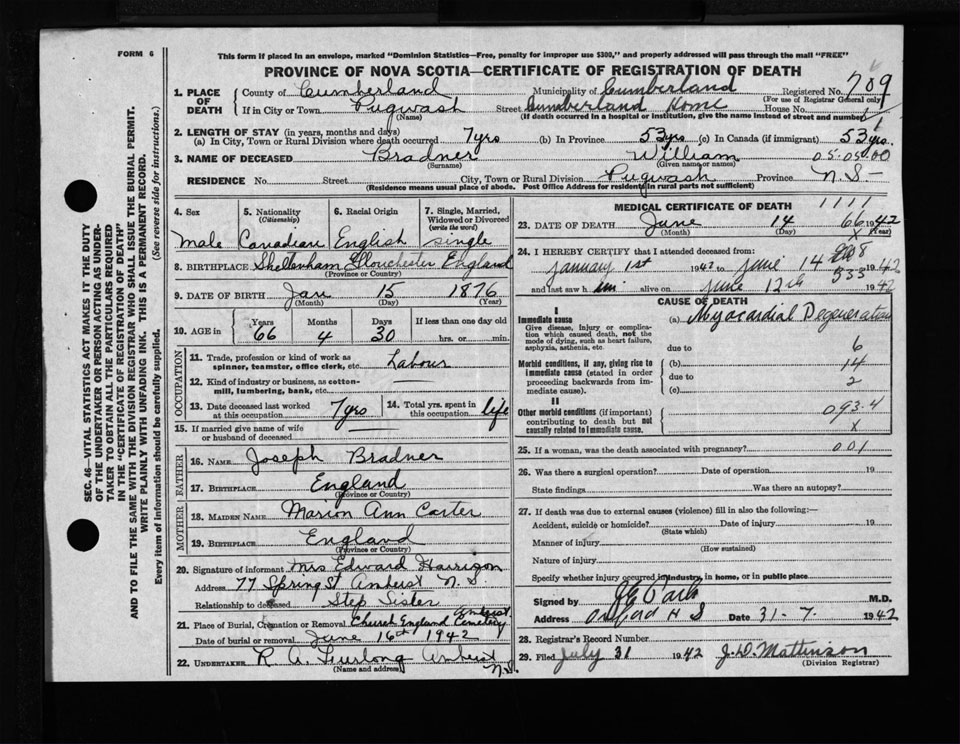 FORM 6
This form if placed in an envelope, marked "Dominion Statistics—Free, penalty for improper use $300," and properly addressed will pass through the mail "FREE"
PROVINCE OF NOVA SCOTIA—CERTIFICATE OF REGISTRATION OF DEATH
1. PLACE OF DEATH County of Cumberland Municipality of Cumberland Registered No. 709
(For use of Registrar General only)
If in City or Town Pugwash Street Cumberland Home House No.
(Name) (If death occurred in a hospital or institution, give the name instead of street and number)
2. LENGTH OF STAY (in years, months and days)
(a) In City, Town or Rural Division where death occurred 7 yrs (b) In Province 53 yrs (c) In Canada (if immigrant) 53 yrs.
3. NAME OF DECEASED Bradner William 05.05.00
(Surname) (Given name or names)
RESIDENCE No. Street City, Town or Rural Division Pugwash Province N.S-
(Residence means usual place of abode. Post Office Address for residents in rural parts not sufficient)
4. Sex 5. Nationality (Citizenship) 6. Racial Origin 7. Single, Married, Widowed or Divorced (write the word)
Male Canadian English single
8. BIRTHPLACE Shellenham Glouchester England
(Province or Country)
9. DATE OF BIRTH Jan 15 1876
(Month) (Day) (Year)
10. AGE in Years Months Days If less than one day old
66 4 30 hrs. or min.
OCCUPATION
11. Trade, profession or kind of work as spinner, teamster, office clerk, etc. Labour
12. Kind of industry or business, as cotton-mill, lumbering, bank, etc. —
13. Date deceased last worked at this occupation 7 yrs 14. Total yrs. spent in this occupation life
15. If married give name of wife or husband of deceased —
FATHER
16. NAME Joseph Bradner
17. BIRTHPLACE England
(Province or Country)
MOTHER
18. MAIDEN NAME Marion Ann Carter
19. BIRTHPLACE England
(Province or Country)
20. Signature of informant Mrs Edward Harrison
Address 77 Spring St Amherst N.S.
Relationship to deceased Step Sister
21. Place of Burial, Cremation or Removal Church England Cemetery Amherst
Date of burial or removal June 16th 1942
22. UNDERTAKER R. A. Furlong Amherst N.S.
(Name and address)
MEDICAL CERTIFICATE OF DEATH 1111
23. DATE OF DEATH June 14 66 1942
(Month) (Day) (Year)
24. I HEREBY CERTIFY that I attended deceased from:
January 1st 1942 to June 14 1942
533
and last saw him alive on June 12th 1942
CAUSE OF DEATH
I
Immediate cause (a) Myocardial Degeneration
Give disease, injury or complication which caused death, not the mode of dying, such as heart failure, asphyxia, asthenia, etc.
due to 6
Morbid conditions, if any, giving rise to immediate cause (stated in order proceeding backwards from immediate cause). (b) 14
due to
(c) 2
II
Other morbid conditions (if important) contributing to death but not causally related to immediate cause. 093.4
x
25. If a woman, was the death associated with pregnancy? 001
26. Was there a surgical operation? Date of operation 19
State findings Was there an autopsy?
27. If death was due to external causes (violence) fill in also the following:—
Accident, suicide or homicide? Date of injury 19
(State which)
Manner of injury
(How sustained)
Nature of injury
Specify whether injury occurred in industry, in home, or in public place
Signed by M.D.
Address Oxford N S Date 31-7. 1942
28. Registrar's Record Number
29. Filed July 31 1942 J. D. Mattinson
(Division Registrar)
SEC. 46—VITAL STATISTICS ACT MAKES IT THE DUTY
OF THE UNDERTAKER OR PERSON ACTING AS UNDER-
TAKER TO OBTAIN ALL THE PARTICULARS REQUIRED
IN THE "CERTIFICATE OF REGISTRATION OF DEATH"
AND TO FILE THE SAME WITH THE DIVISION REGISTRAR WHO SHALL ISSUE THE BURIAL PERMIT.
WRITE PLAINLY WITH UNFADING INK. THIS IS A PERMANENT RECORD.
Every item of information should be carefully supplied. (See reverse side for instructions.)